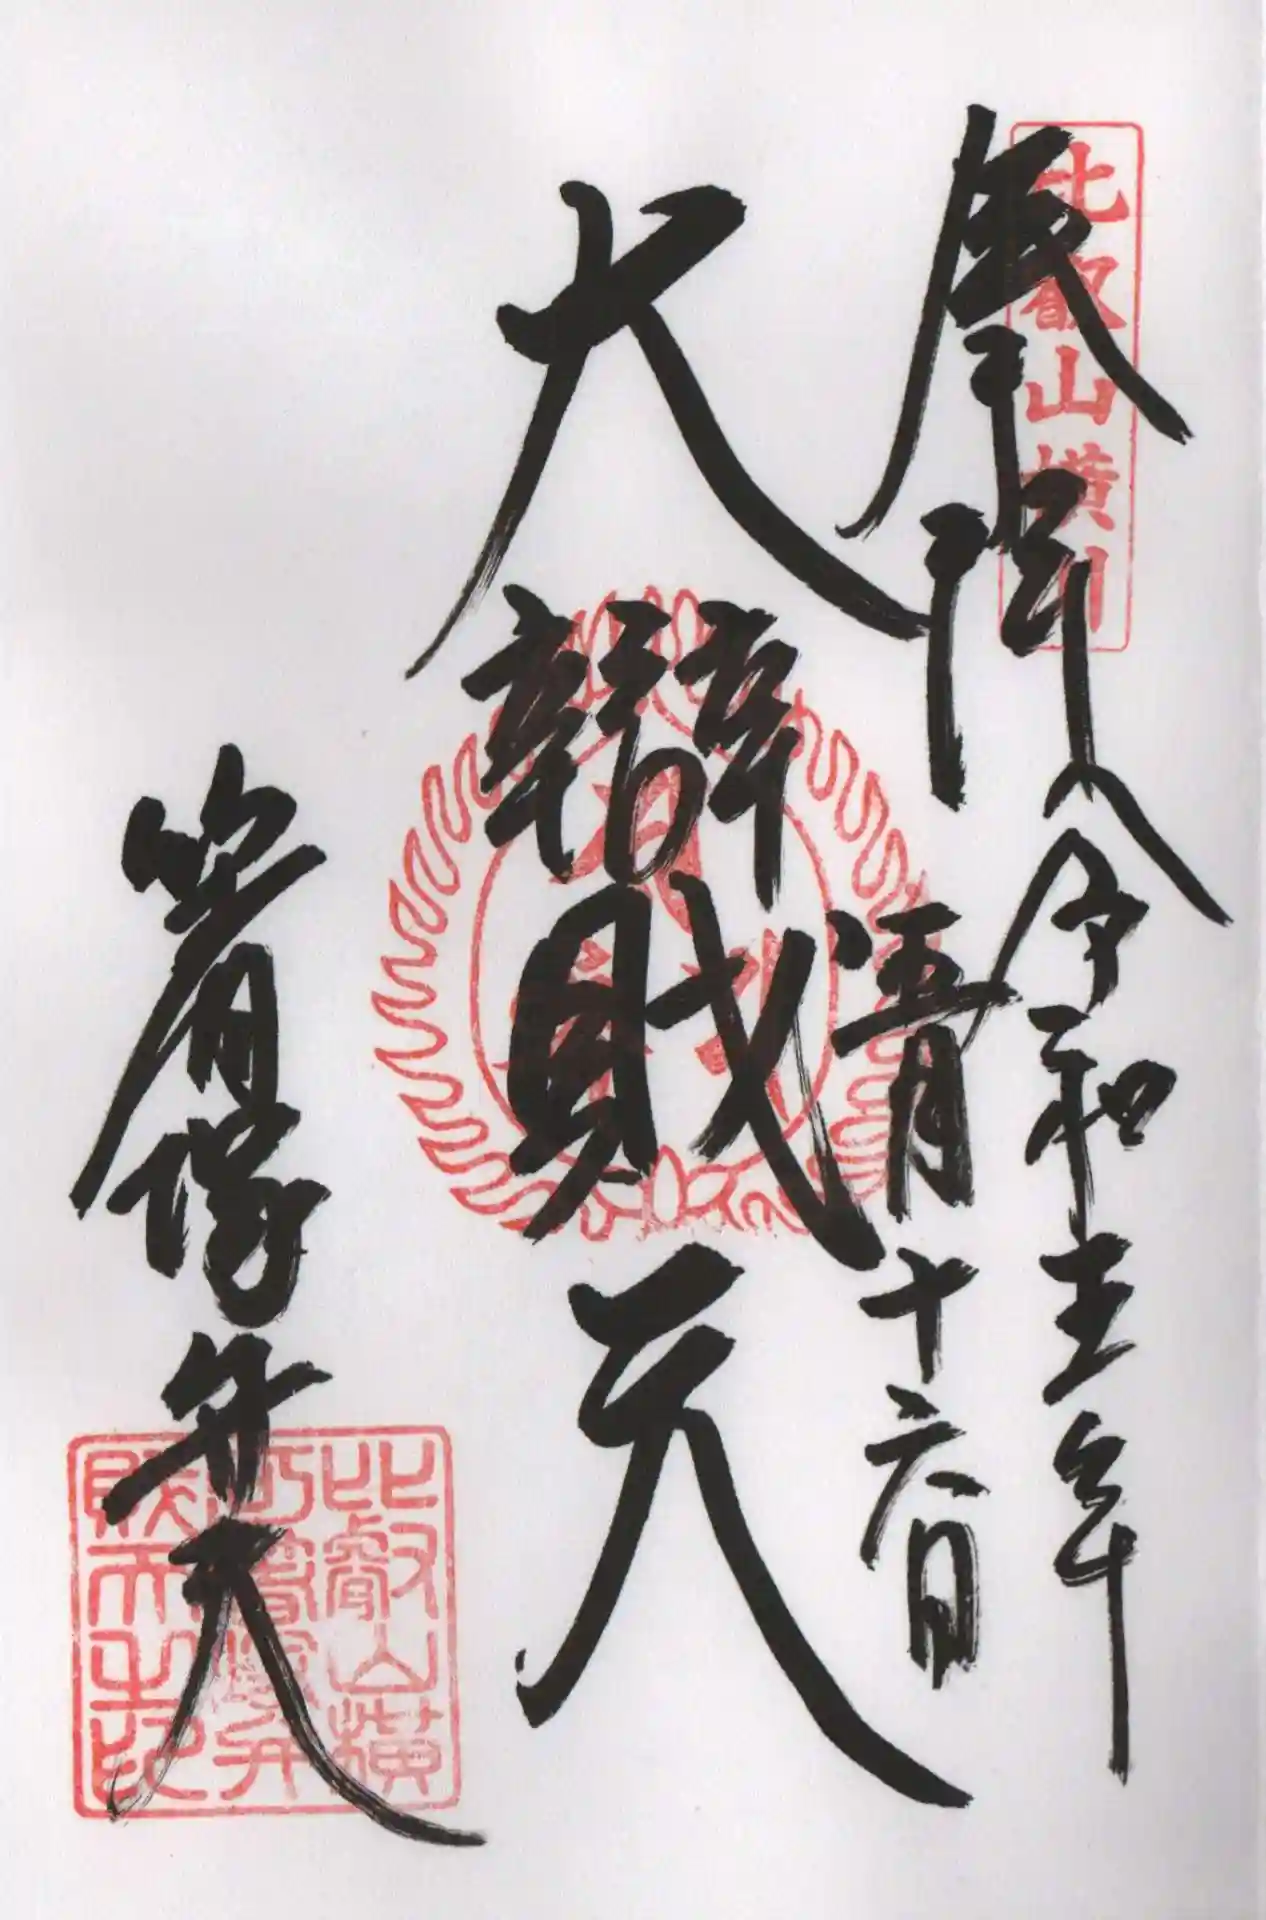 比叡山横川
奉拝
令和五年
五月十六日
大辨財天
箸塚弁天
比叡山横
川箸塚弁
財天之印